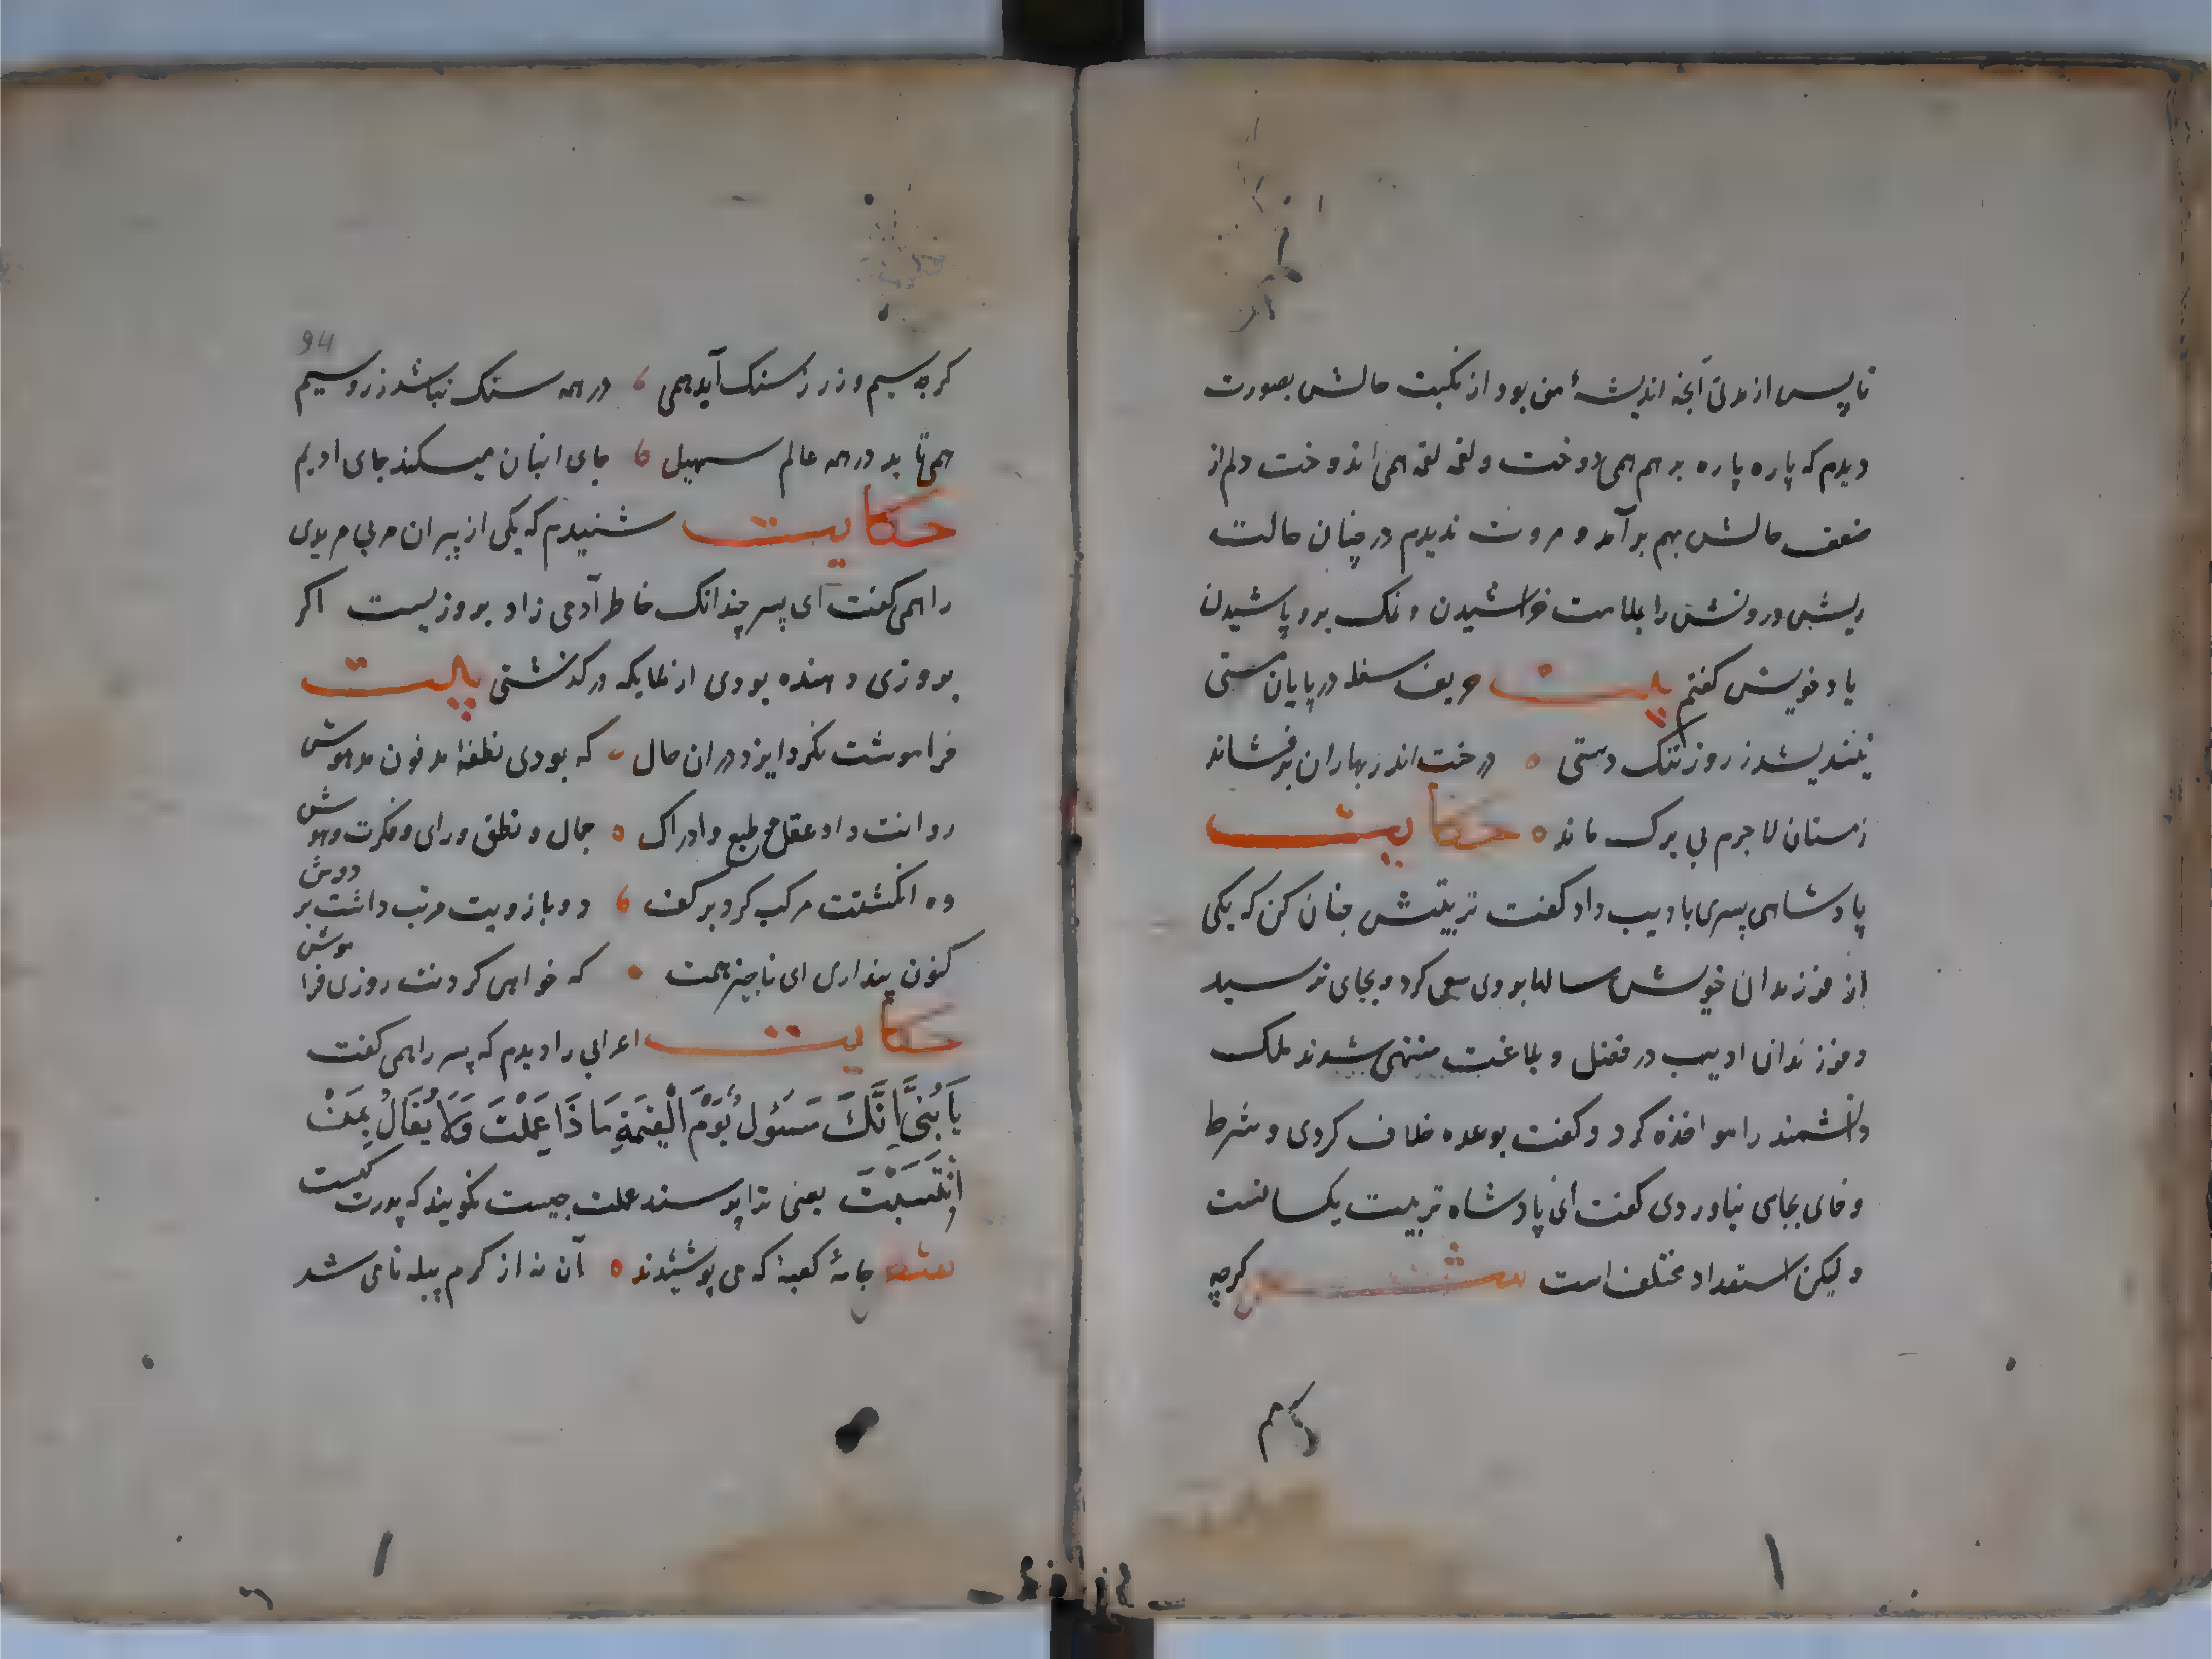 تا پس از مدتی آنچه اندیشهٔ من بود از نکبت حالش بصورت
دیدم که پاره پاره بر هم همی دوخت و لقمه لقمه همی اندوخت دلم از
ضعف حالش بهم بر آمد و مروت ندیدم در چنان حالت
ریش درونش را بملامت خراشیدن و نمک برو پاشیدن
با دخویش کفتم بیت حریف سفله در پایان مستی
نیندیشد ز روز تنک دستی درخت اندر بهاران برفشاند
زمستان لاجرم بی برک ماند حکایت
پادشاهی پسری بادیب داد کفت تربیتش چنان کن که یکی
از فرزندان خویش سالها برو سعی کرد و بجای نرسید
و فرزندان ادیب در فضل و بلاغت منتهی شدند ملک
دانشمند را مواخذه کرد و کفت بوعده خلاف کردی و شرط
وفای بجای نیاوردی کفت ای پادشاه تربیت یکسانست
و لیکن استعداد مختلف است کرچه
کرچه سیم و زر ز سنک آید همی در همه سنک نباشد زر و سیم
همی تابد در همه عالم سهیل جای انبان میکند جای ادیم
حکایت شنیدم که یکی از پیران مربی مریدی
را همی کفت ای پسر چندانک خاطر آدمی زاد بروزیست اکر
بروزی دهنده بودی از ملایکه درکذشتی بیت
فراموشت نکرد ایزد در ان حال که بودی نطفهٔ مدفون مدهوش
روانت داد و عقل و طبع و ادراک جمال و نطق و رای و فکرت و هوش
ده انکشتت مرکب کرد بر کف دو بازویت مرتب داشت بر دوش
کنون پنداری ای ناچیز همت که خواهی کردنت روزی فراموش
حکایت اعرابی را دیدم که پسر را همی کفت
يَا بُنَيَّ إِنَّكَ مَسْئُولٌ يَوْمَ الْقِيَمَةِ مَاذَا عَمِلْتَ وَلَا يُقَالُ بِمَنْ
انْتَسَبْتَ یعنی ترا پرسند عملت چیست نکویند که پدرت کیست
شعر جامهٔ کعبه که می پوشیدند آن نه از کرم پیله نامی شد
94